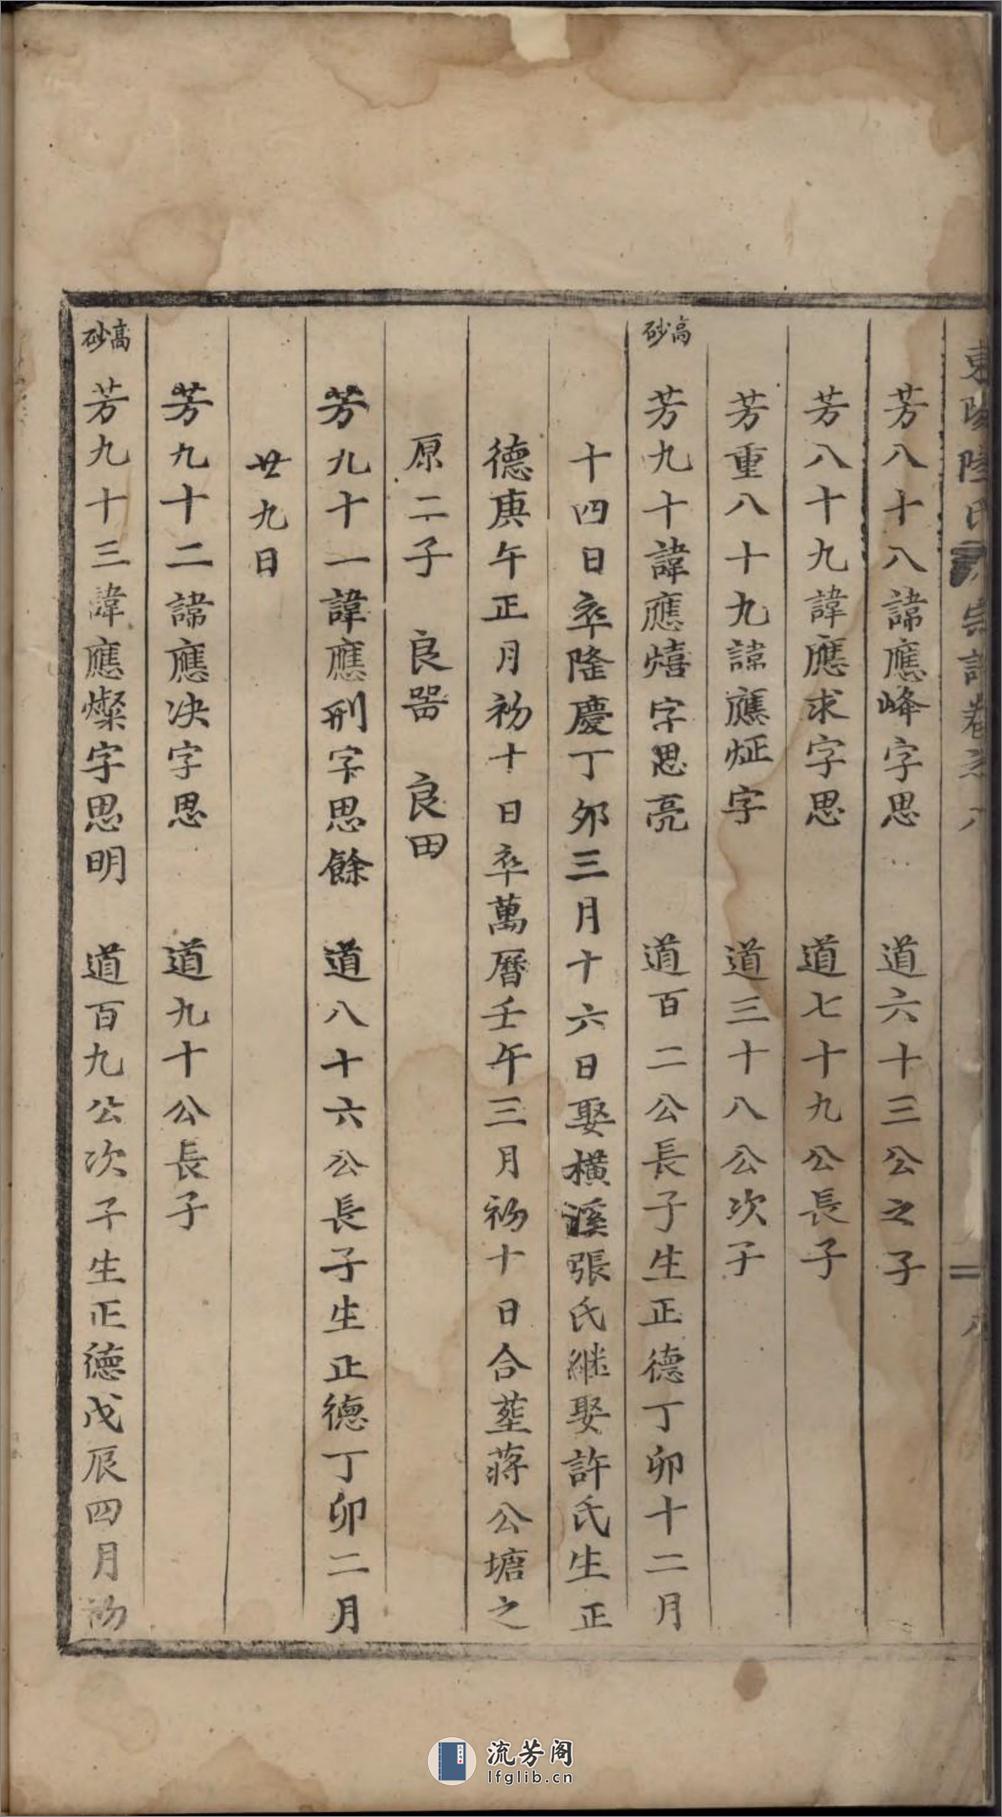 芳八十八諱應峰字思　道六十三公之子
芳八十九諱應求字思　道七十九公長子
芳重八十九諱應炡字　道三十八公次子
高砂　芳九十諱應熺字思亮　道百二公長子生正德丁卯十二月
十四日卒隆慶丁卯三月十六日娶橫溪張氏継娶許氏生正
德庚午正月初十日卒萬曆壬午三月初十日合塟蔣公塘之
原二子　良噐　良田
芳九十一諱應刑字思餘　道八十六公長子生正德丁卯二月
廿九日
芳九十二諱應决字思　道九十公長子
高砂　芳九十三諱應燦字思明　道百九公次子生正德戊辰四月初
流芳阁
lfglib.cn